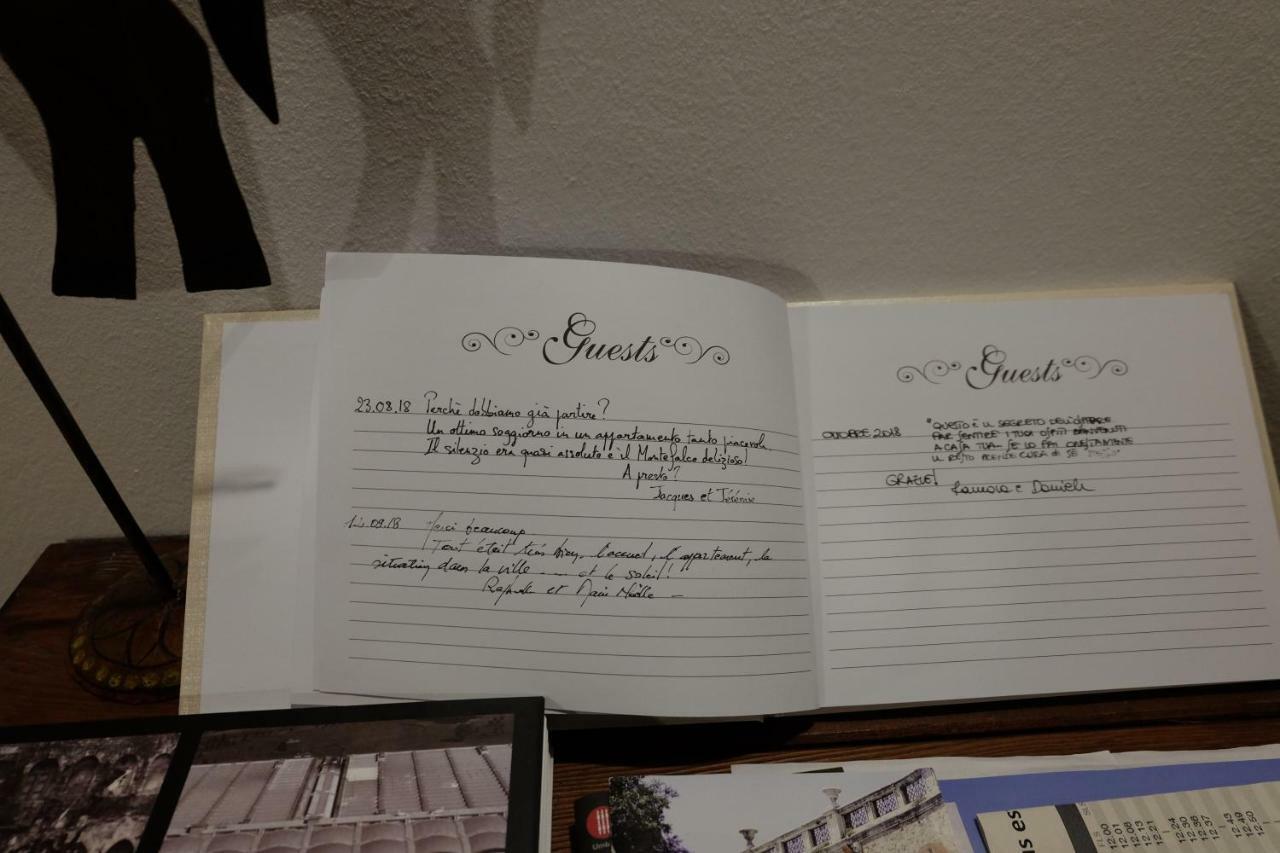 Guests
23.08.18 Perchè dobbiamo già partire?
Un ottimo soggiorno in un appartamento tanto piacevole.
Il silenzio era quasi assoluto e il Montefalco delizioso!
A presto?
Jacques et Jérémie
.09.18 Merci beaucoup
Tout était très bien, l'accueil, l'appartement, la
situation dans la ville ... et le soleil!
et
Guests
OTTOBRE 2018 "QUESTO È IL SEGRETO DELL'
FAR SENTIRE I TUOI OSPITI
A CASA TUA. SE LO FAI ONESTAMENTE
IL RESTO PRENDE CURA DI SÉ
GRAZIE!
e Daniele
Umb
us es
12.00
12.01
12.08
12.13
12.21
12.24
12.30
12.36
12.37
12.45
12.49
12.50